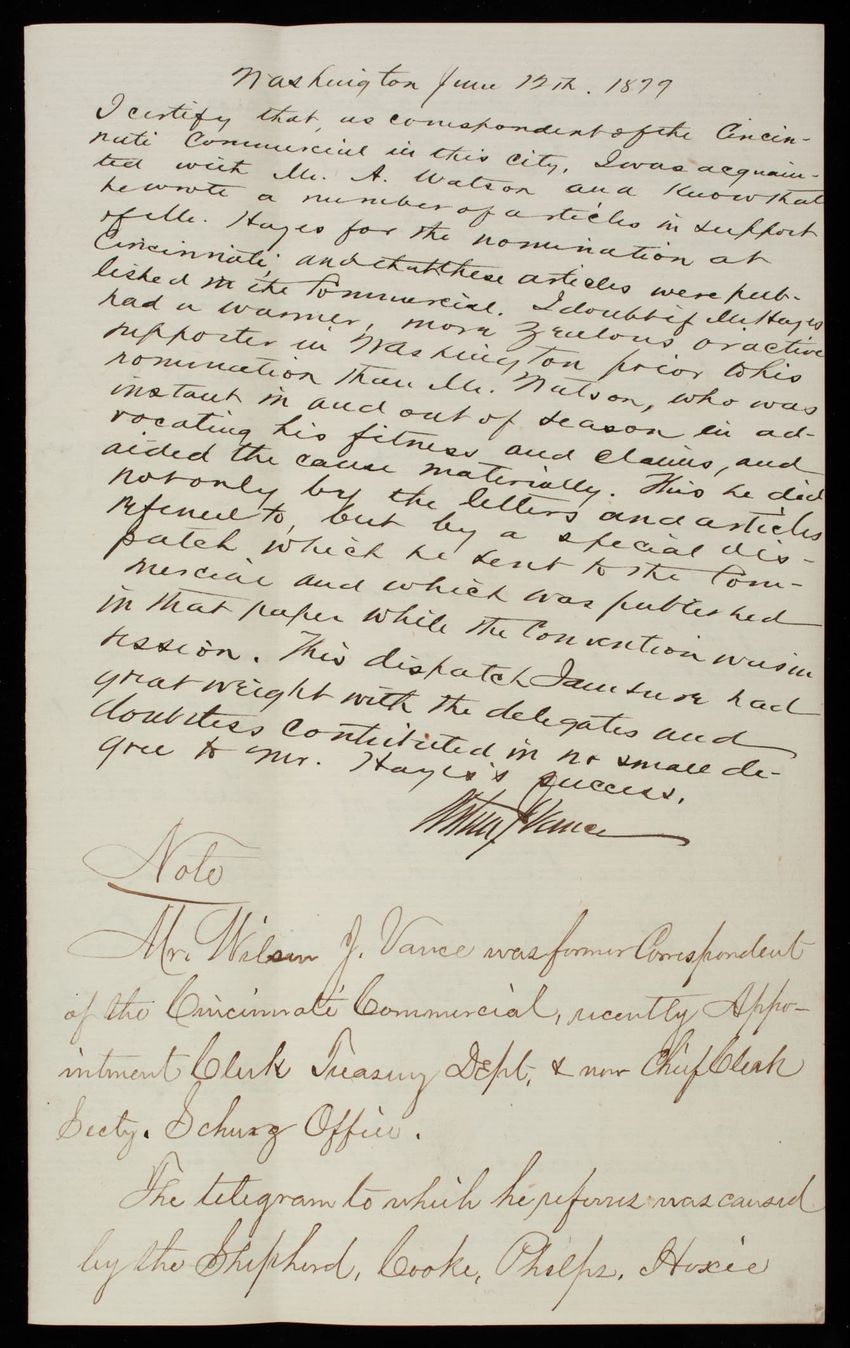 Washington June 12th. 1877
I certify that, as correspondent of the Cincin-
nati Commercial in this city, I was acquain-
ted with Mr. A. Watson and know that
he wrote a number of articles in support
of Mr. Hayes for the nomination at
Cincinnati, and that these articles were pub-
lished in the Commercial. I doubt if Mr Hayes
had a warmer, more zealous or active
supporter in Washington prior to his
nomination than Mr. Watson, who was
instant in and out of season in ad-
vocating his fitness and claims, and
aided the cause materially. This he did
not only by the letters and articles
referred to, but by a special dis-
patch which he sent to the Com-
mercial and which was published
in that paper while the Convention was in
session. This dispatch I am sure had
great weight with the delegates and
doubtless contributed in no small de-
gree to Mr. Hayes's success.
Wilson J Vance
Note
Mr. Wilson J. Vance was former Correspondent
of the Cincinnati Commercial, recently Appo-
intment Clerk Treasury Dept, & now Chief Clerk
Secty. Schurz Office.
The telegram to which he referrs was caused
by the Shepherd, Cooke, Phelps, Hoxie